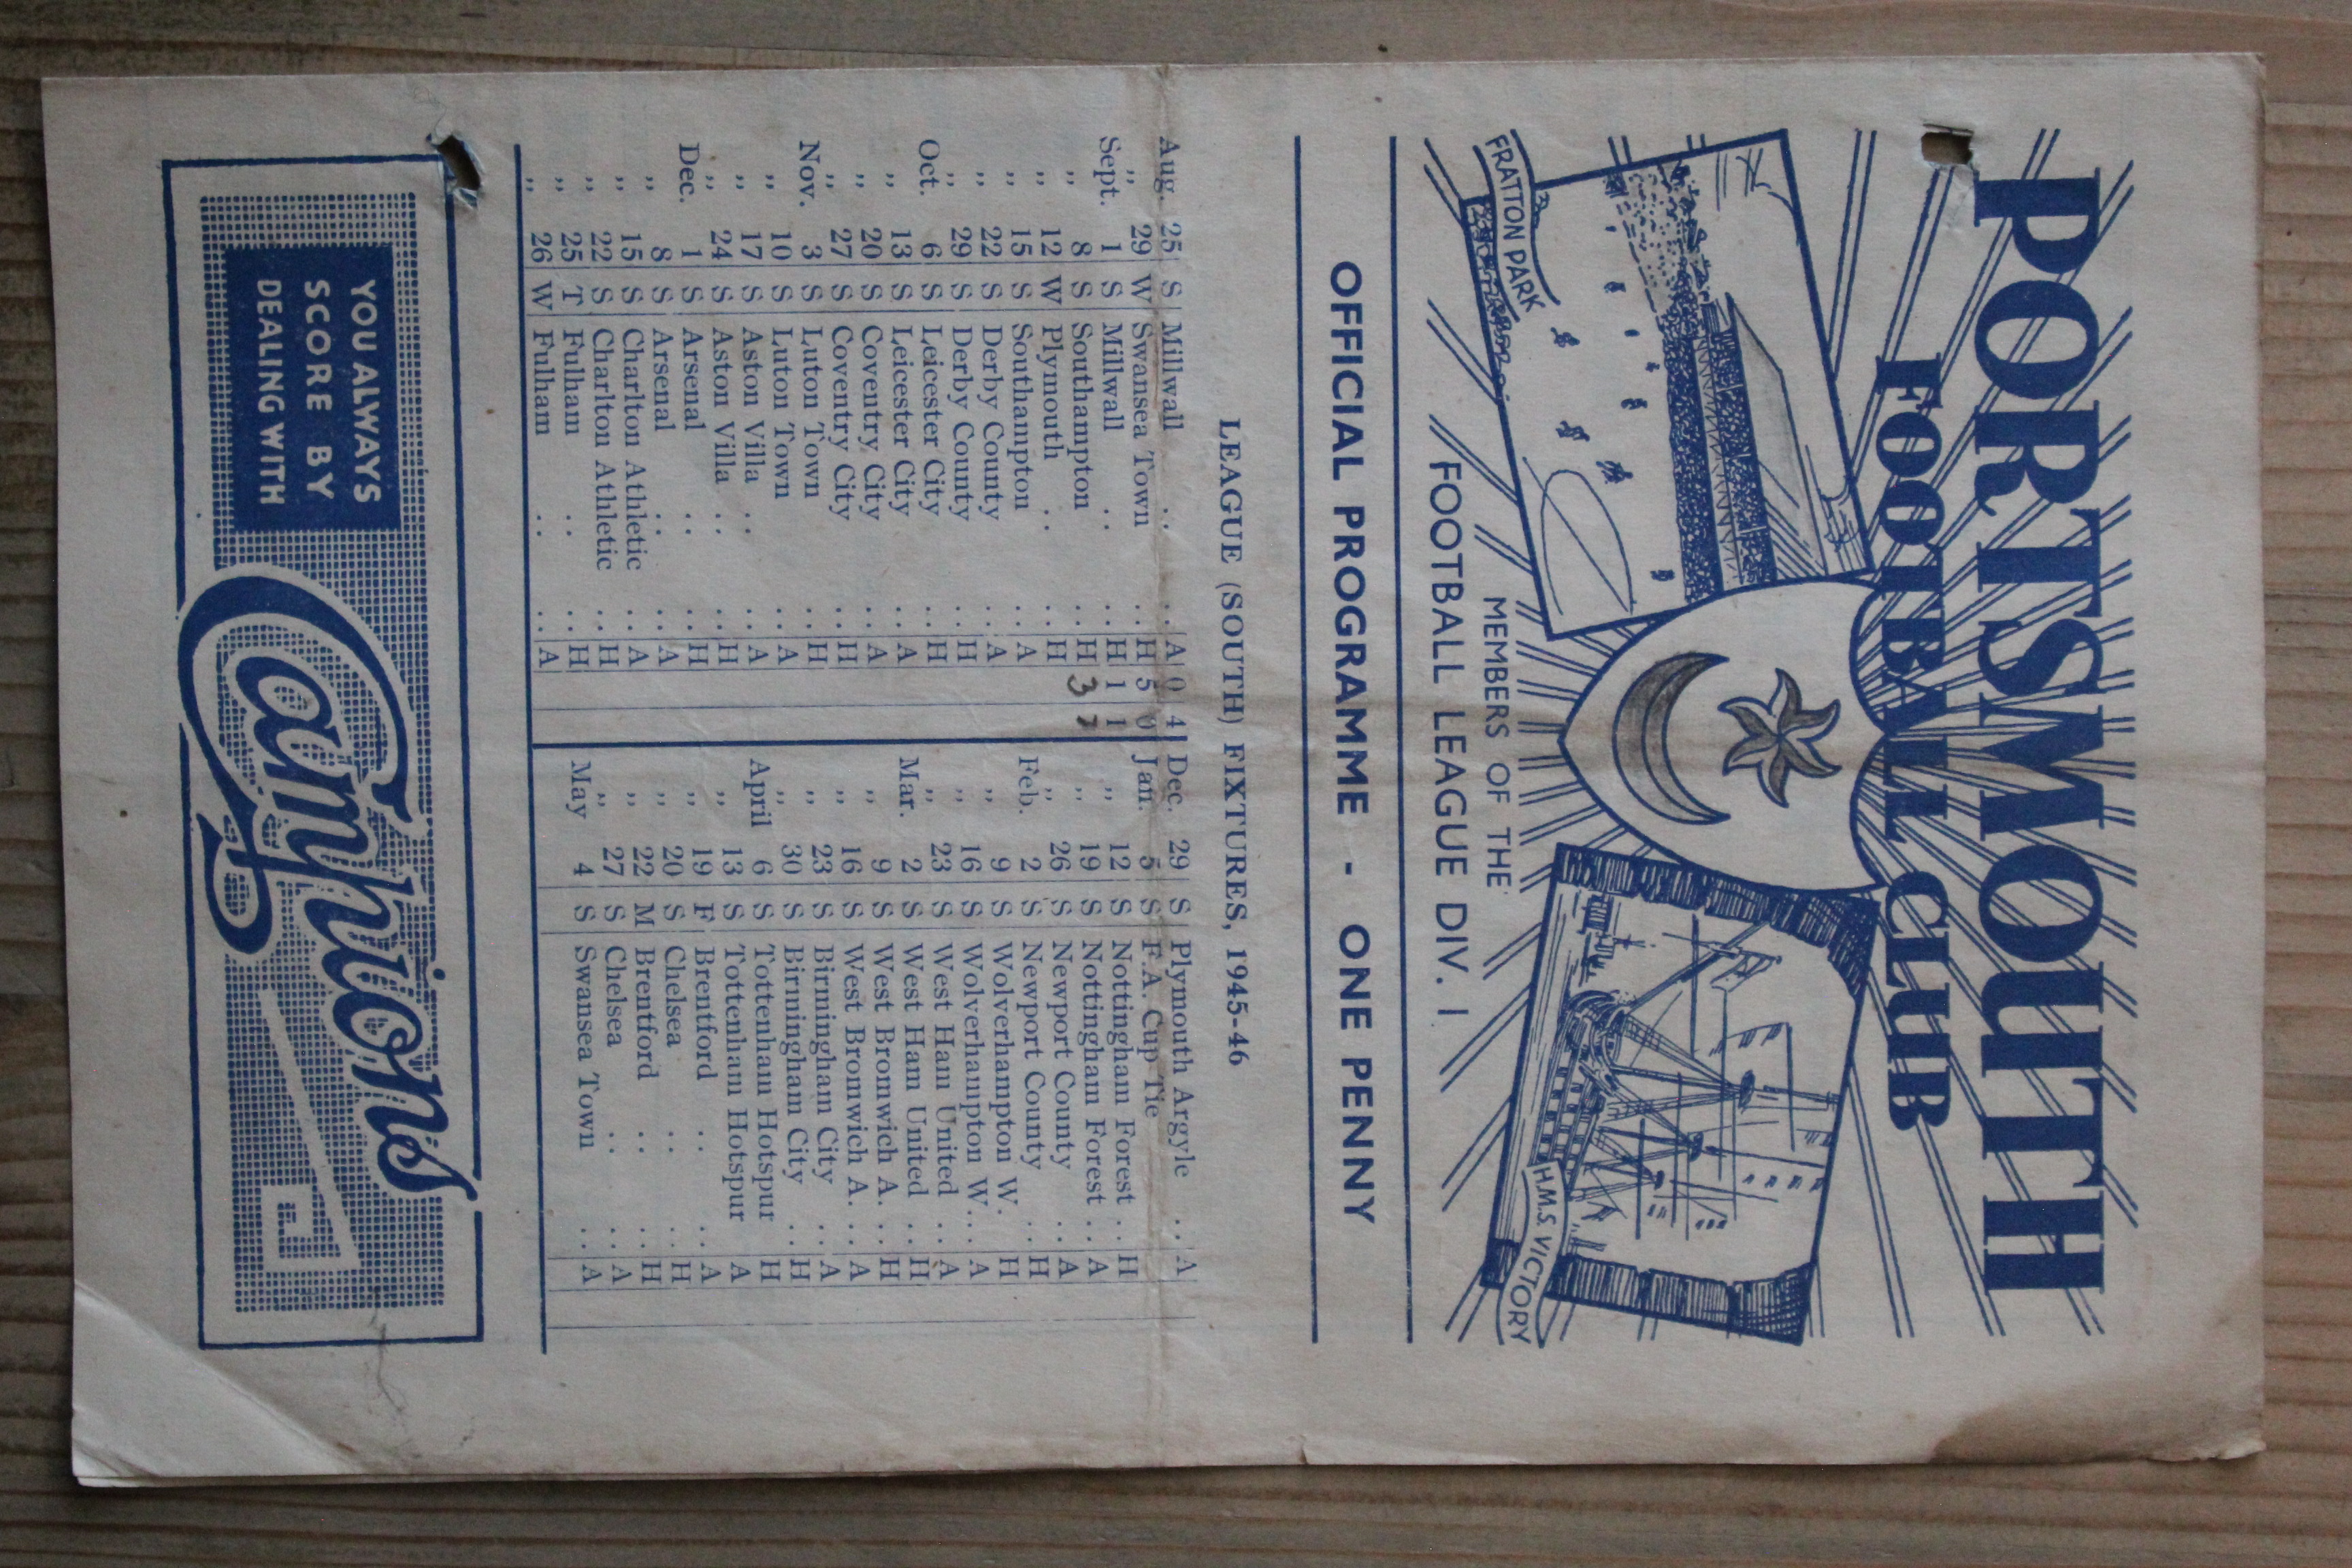 PORTSMOUTH
FOOTBALL CLUB
FRATTON PARK
H.M.S. VICTORY
MEMBERS OF THE
FOOTBALL LEAGUE DIV. I
OFFICIAL PROGRAMME - ONE PENNY
LEAGUE (SOUTH) FIXTURES, 1945-46
Aug. 25 S Millwall .. .. A 0 4
„ 29 W Swansea Town .. H 5 0
Sept. 1 S Millwall .. .. H 1 1
„ 8 S Southampton .. H 3
„ 12 W Plymouth .. .. H
„ 15 S Southampton .. A
„ 22 S Derby County .. A
„ 29 S Derby County .. H
Oct. 6 S Leicester City .. H
„ 13 S Leicester City .. A
„ 20 S Coventry City .. A
„ 27 S Coventry City .. H
Nov. 3 S Luton Town .. H
„ 10 S Luton Town .. A
„ 17 S Aston Villa .. .. A
„ 24 S Aston Villa .. .. H
Dec. 1 S Arsenal .. .. H
„ 8 S Arsenal .. .. A
„ 15 S Charlton Athletic .. A
„ 22 S Charlton Athletic .. H
„ 25 T Fulham .. .. H
„ 26 W Fulham .. .. A
Dec. 29 S Plymouth Argyle .. A
Jan. 5 S F.A. Cup Tie
„ 12 S Nottingham Forest .. H
„ 19 S Nottingham Forest .. A
„ 26 S Newport County .. A
Feb. 2 S Newport County .. H
„ 9 S Wolverhampton W. H
„ 16 S Wolverhampton W. .. A
„ 23 S West Ham United .. A
Mar. 2 S West Ham United .. H
„ 9 S West Bromwich A. .. H
„ 16 S West Bromwich A. .. A
„ 23 S Birmingham City .. A
„ 30 S Birmingham City .. H
April 6 S Tottenham Hotspur H
„ 13 S Tottenham Hotspur A
„ 19 F Brentford .. .. A
„ 20 S Chelsea .. .. H
„ 22 M Brentford .. .. H
„ 27 S Chelsea .. .. A
May 4 S Swansea Town .. A
YOU ALWAYS
SCORE BY
DEALING WITH
Camphions
LTD